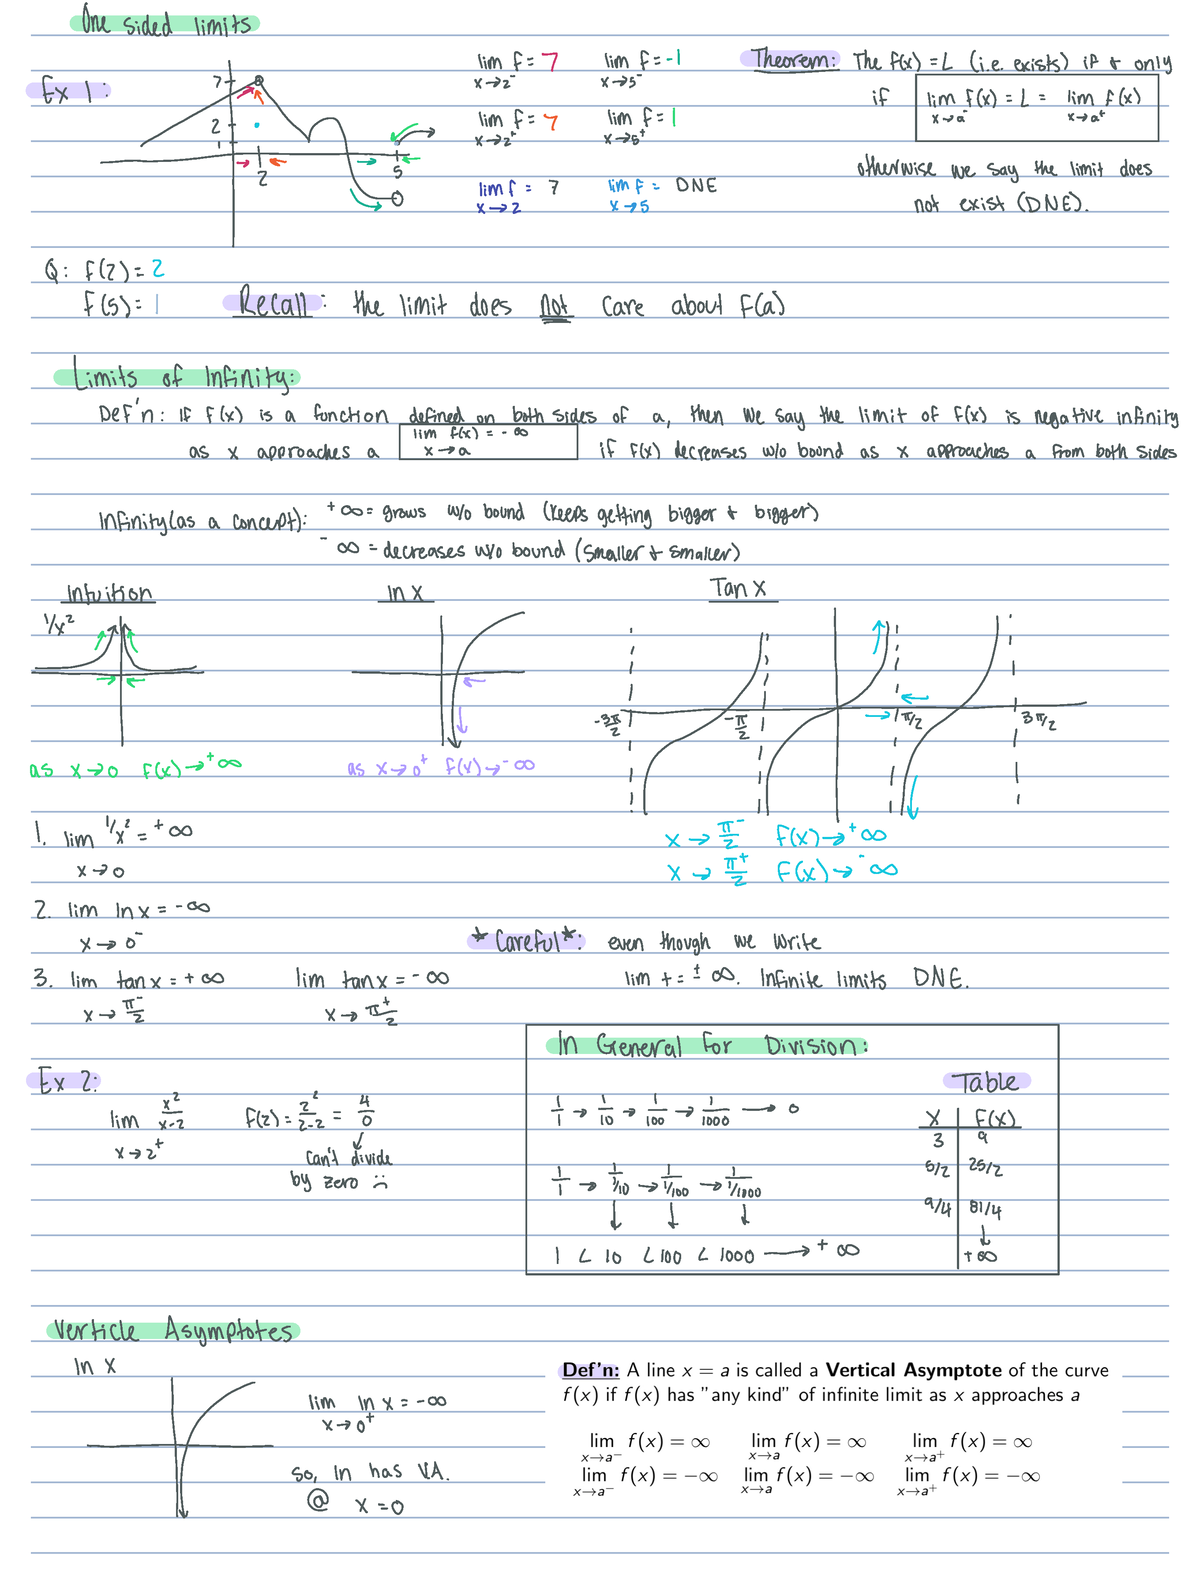 One sided limits
Ex 1:
7
2
1
2
5
lim f = 7
x→2⁻
lim f = -1
x→5⁻
lim f = 7
x→2⁺
lim f = 1
x→5⁺
lim f = 7
x→2
lim f = DNE
x→5
Theorem: The f(x) = L (i.e. exists) if & only
if lim f(x) = L = lim f(x)
x→a⁻ x→a⁺
otherwise we say the limit does
not exist (DNE).
Q: f(2) = 2
f(5) = 1
Recall: the limit does not care about f(a)
Limits of Infinity:
Def'n: If f(x) is a function defined on both sides of a, then we say the limit of f(x) is negative infinity
as x approaches a lim f(x) = -∞ if f(x) decreases w/o bound as x approaches a from both sides
x→a
Infinity (as a concept): +∞ = grows w/o bound (keeps getting bigger & bigger)
-∞ = decreases w/o bound (smaller & smaller)
Intuition
1/x²
as x→0 f(x)→+∞
ln x
as x→0⁺ f(x)→-∞
Tan x
-3π/2
-π/2
π/2
3π/2
x→π/2⁻ f(x)→+∞
x→π/2⁺ f(x)→-∞
1. lim 1/x² = +∞
x→0
2. lim ln x = -∞
x→0⁻
3. lim tan x = +∞ lim tan x = -∞
x→π/2⁻ x→π/2⁺
*Careful*: even though we write
lim f = ±∞. Infinite limits DNE.
Ex 2:
lim x²/x-2 f(2) = 2²/2-2 = 4/0
x→2⁺
Can't divide
by zero
In General for Division:
1/1 → 1/10 → 1/100 → 1/1000 → 0
1/1 → 1/1/10 → 1/1/100 → 1/1/1000
1 < 10 < 100 < 1000 → +∞
Table
x f(x)
3 9
5/2 25/2
9/4 81/4
+∞
Verticle Asymptotes
ln x
lim ln x = -∞
x→0⁺
So, ln has V.A.
@ x = 0
Def'n: A line x = a is called a Vertical Asymptote of the curve
f(x) if f(x) has "any kind" of infinite limit as x approaches a
lim f(x) = ∞ lim f(x) = ∞ lim f(x) = ∞
x→a⁻ x→a x→a⁺
lim f(x) = −∞ lim f(x) = −∞ lim f(x) = −∞
x→a⁻ x→a x→a⁺